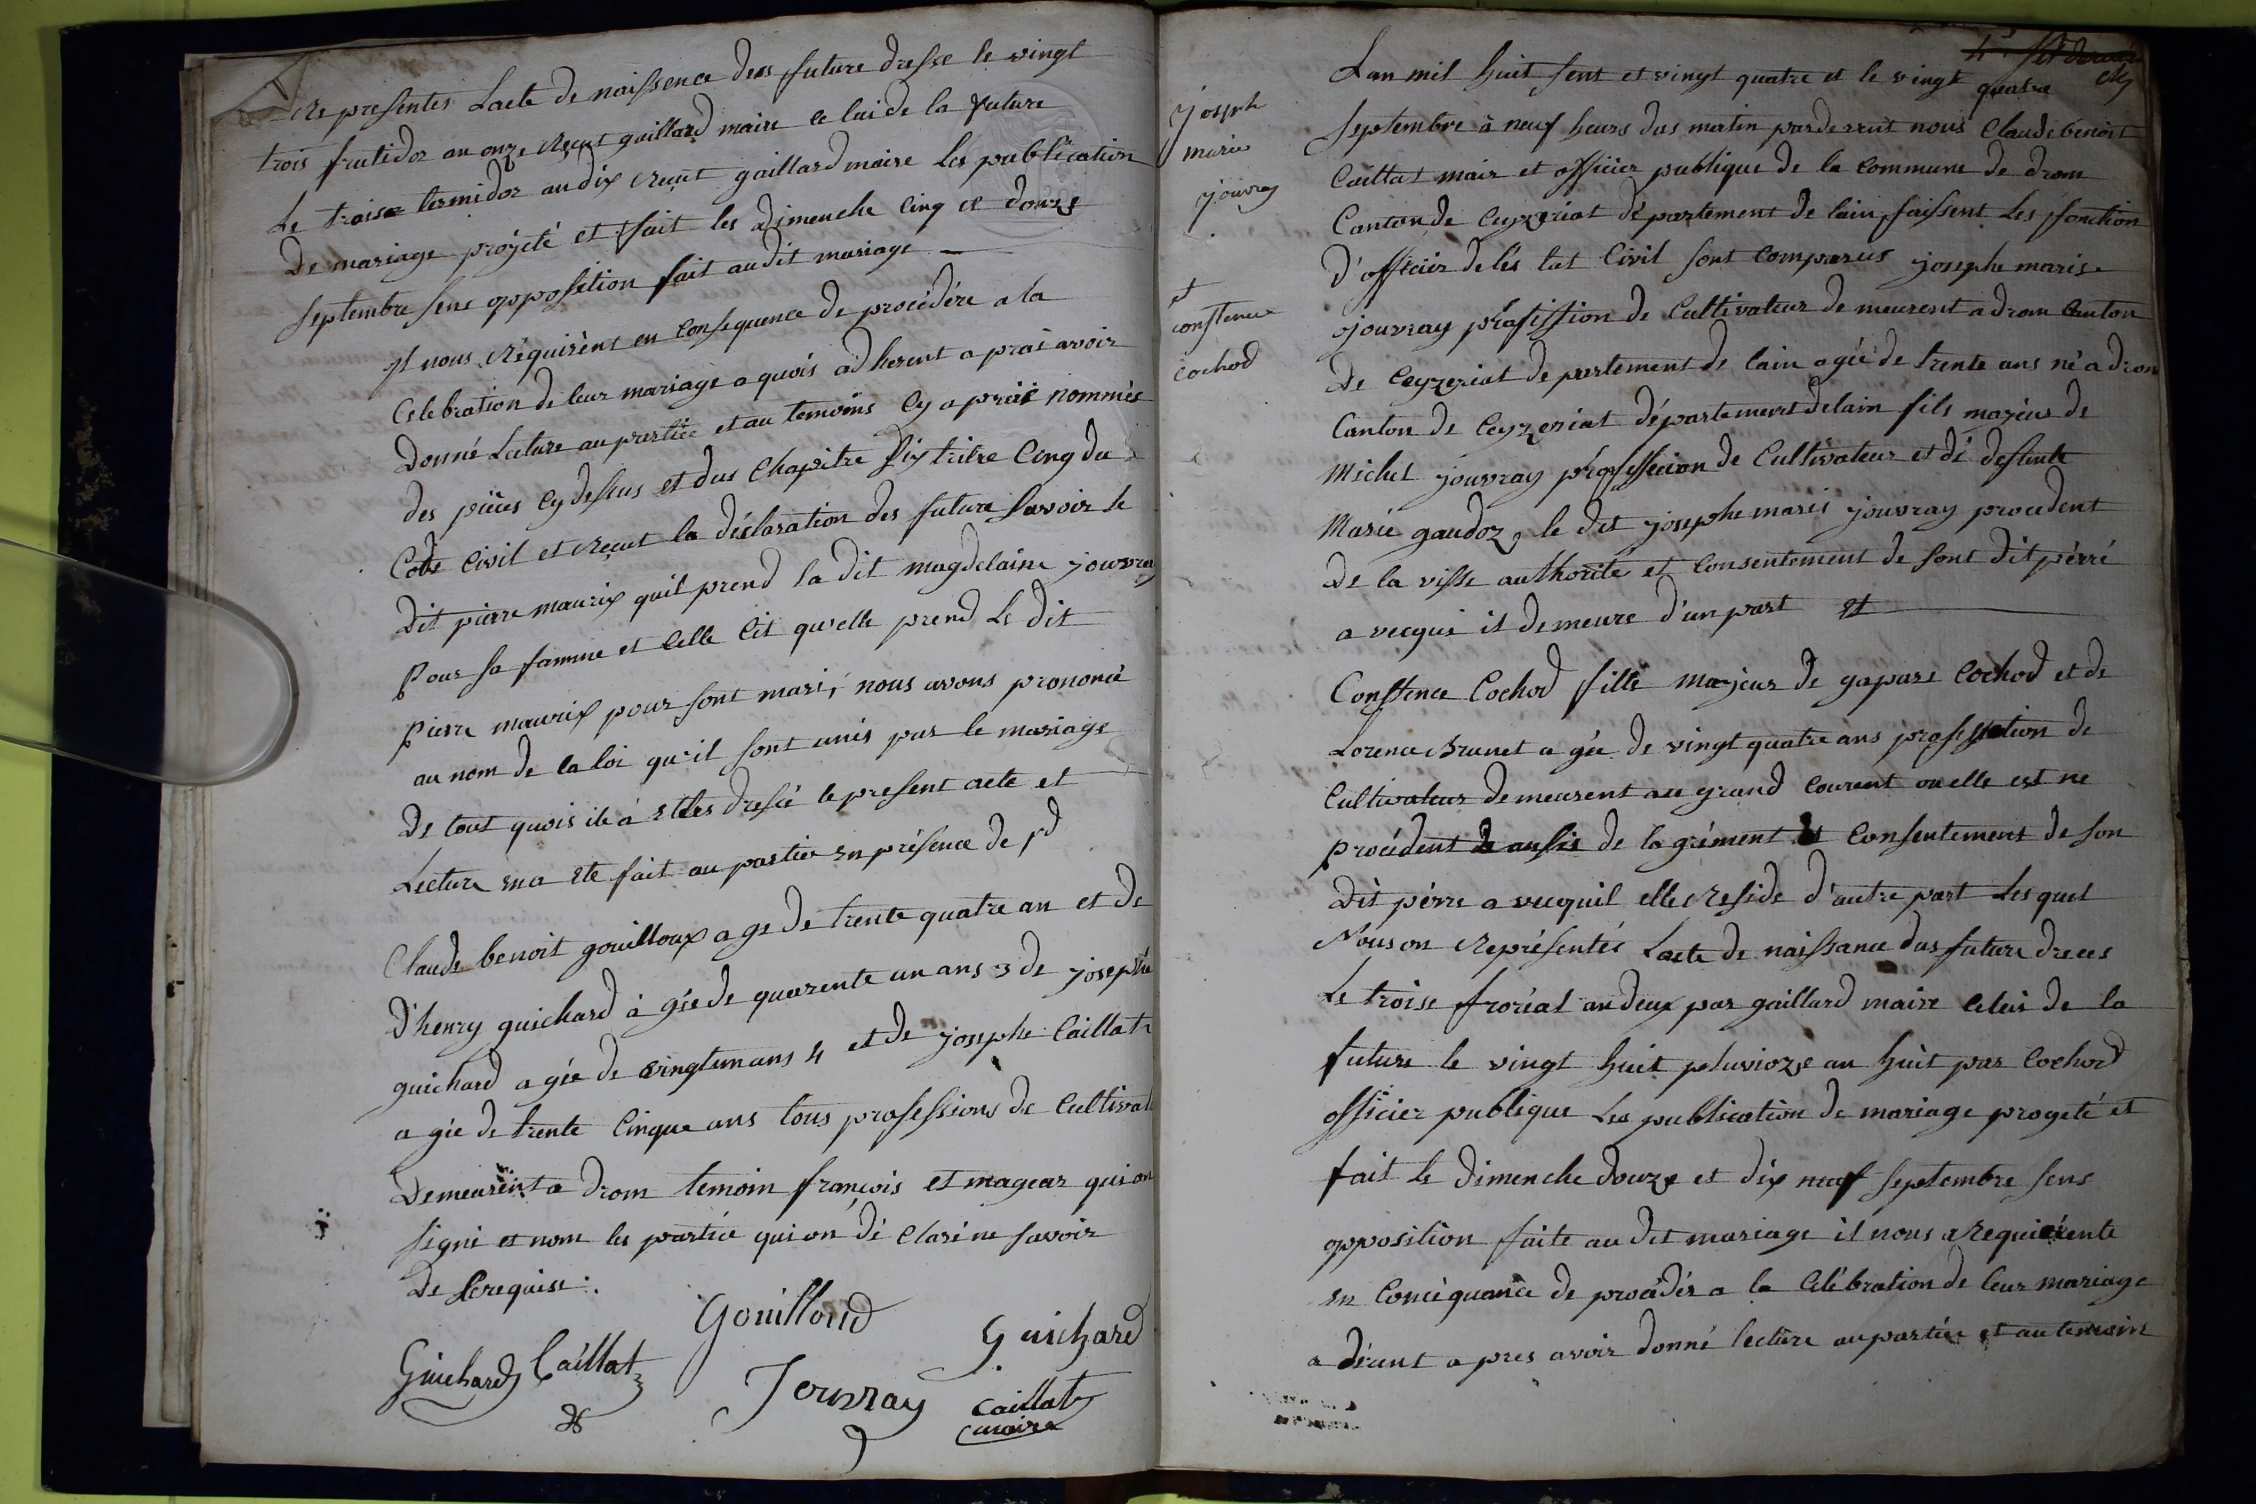 représentés Lacte de naissence des future dresse le vingt
trois frutidor an onze reçut gaillard maire celui de la future
Le troise termidor an dix reçut gaillard maire Les publication
De mariage projeté et fait les dimenche cinq et douze
septembre sens opposition fait audit mariage
Il nous réquirènt en consequence de procèdére a la
Celebration de leur mariage a quois adherent a prai avoir
Donné Lecture au partiée et au temoins cy a praié nommés
des pièes cy dessus et dus chapitre six tritre Cinq du
Code Civil et reçut la déclaration des future savoir le
Dit pierre maurix quil prend la dit magdelaine jouvray
Pour sa famme et celle cit qu'elle prend Le dit
pierre maurix pour sont mari, nous avons prononcé
au nom de la loi qu'il sont unis par le mariage
De tout quois ila ettes dressé le present acte et
Lecture en a ete fait au partiée en présence de 1d
Claude benoit gouilloux age de trente quatre an et de
D'henry guichard a gée de quarente un ans 3 de josephe
guichard a gée de vingtun ans 4 et de josephe Caillat
a gée de trente Cinque ans tous professions de Cultivat
Demeurent a drom temoin françois et magear qui on
signé et nom les partiée qui on dé claré ne savoir
De Lrequise.
Gouilloud Guichard
Guichard Caillat
Jouvray Caillat
maire
quatre
Joseph
marie
jouvray
et
constence
cochod
Lan mil huit sent et vingt quatre et le vingt
septembre à neuf heurs dus matin pardevent nous Claude benoit
Caillat mair et officier publique de la commune de drom
Canton de Ceyzeriat département de lain faissent Les fonction
D'officier de lés tat Civil sont comparus josephe marie
jouvray profission de Cultivateur de meurent a drom Canton
De Ceyzeriat de partement de lain agée de trente ans né a drom
Canton de Ceyzeriat département de lain fils majeur de
Michel jouvray professecion de Cultivateur et dé defunte
Marie gaudoz, le dit josephe marié jouvray procedent
De la visse authorité et Consentement de sont dit pérré
a vecqui il demeure d'un part et
Constence Cochod fille majeur de gapare Cochod et de
Lorence Brunet a gée de vingt quatre ans professtion de
Cultivateur demeurent au grand Courent ou elle est ne
procédent de aussis de lagrément et Consentement de son
Dit pérre a vecquil elle reside d'autre part Lesquel
Nous on représentés Lacte de naissance dus future drecés
Le troise froréal an deux par gaillard maire celui de la
future le vingt huit pluvioze an huit par Cochod
officier publique Les publication de mariage projeté et
fait Le dimenche douze et dix neuf septembre sens
opposition faite au dit mariage il nous a requiérente
en Concéquance de procédér a la Célébration de leur mariage
a dérant a pres avoir donné lecture au partiée et au temoins